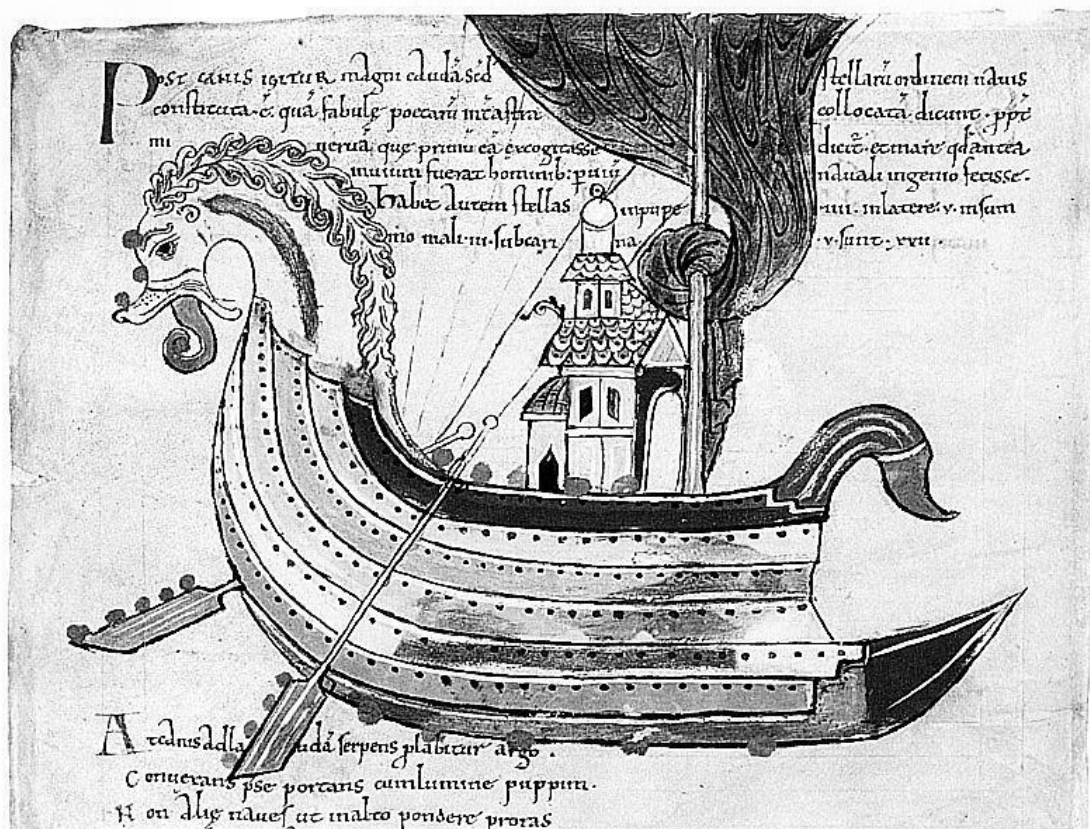 Post canis igitur magni caudā sed stellarū ordinem navis
constituta .ē. quā fabulę poetarū int̄ astra collocatā dicunt . ppt̄
mi nervā quę primū eā excogitasse dicit̄ . et mare qd̄ antea
invium fuerat hominib: pviū navali ingenio fecisse .
habet autem stellas in puppe .iiii. in latere .v. in sum
mo mali .iii. sub cari na .v. sunt .xvii.
At canis ad caudā serpens plabitur argo .
Conversam pse portans cum lumine puppim .
Non alię naves ut in alto pondere proras